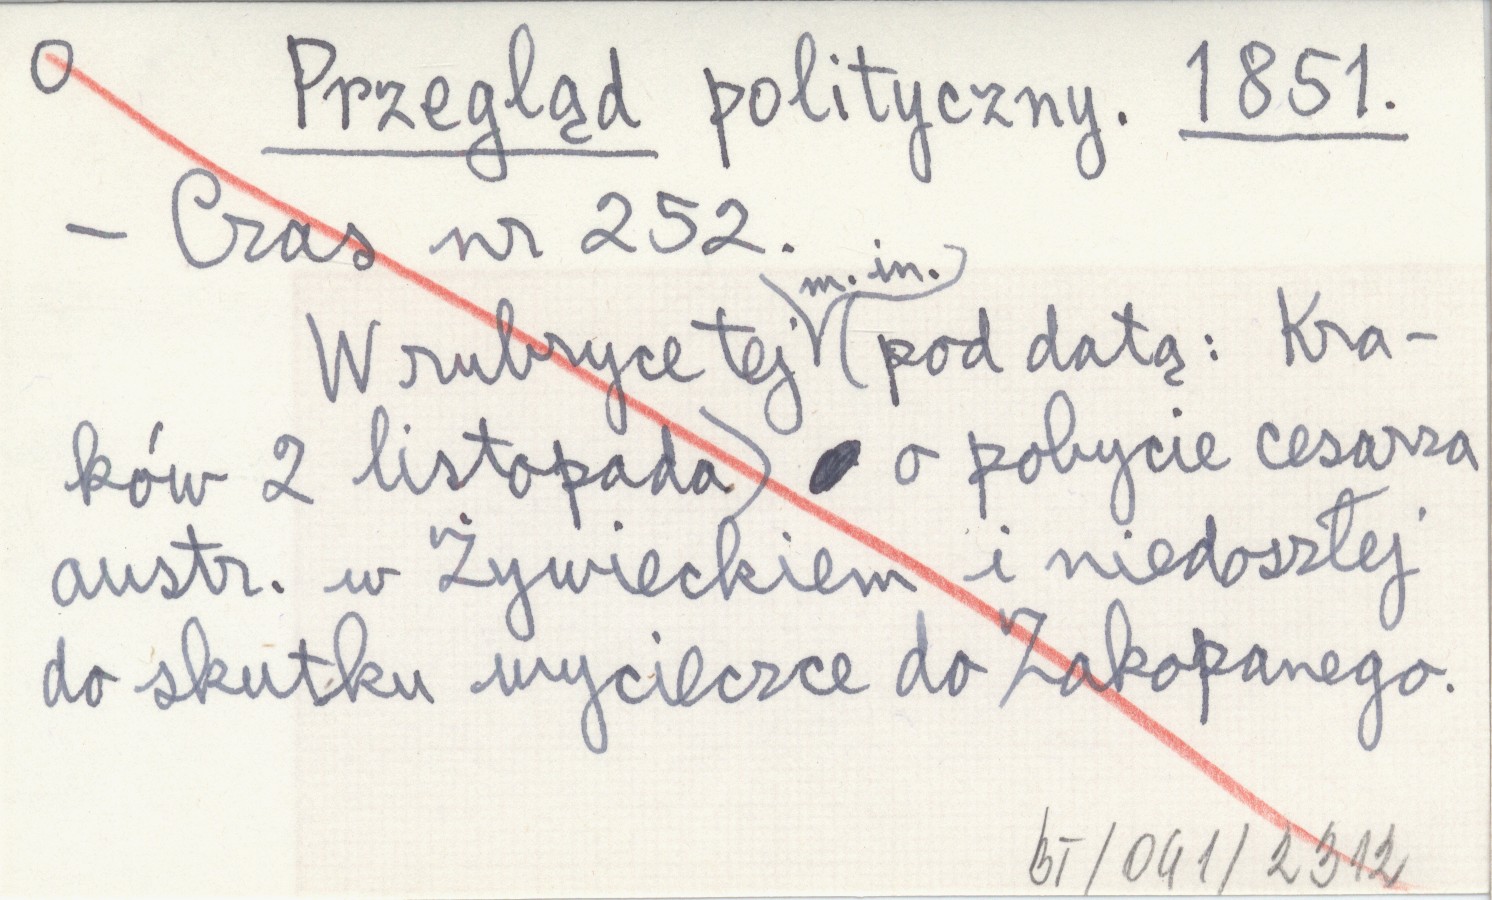 O Przegląd polityczny. 1851.
– Czas nr 252.
W rubryce tej m. in. (pod datą: Kra-
ków 2 listopada) o pobycie cesarza
austr. w Żywieckiem i niedoszłej
do skutku wycieczce do Zakopanego.
BT/041/2312